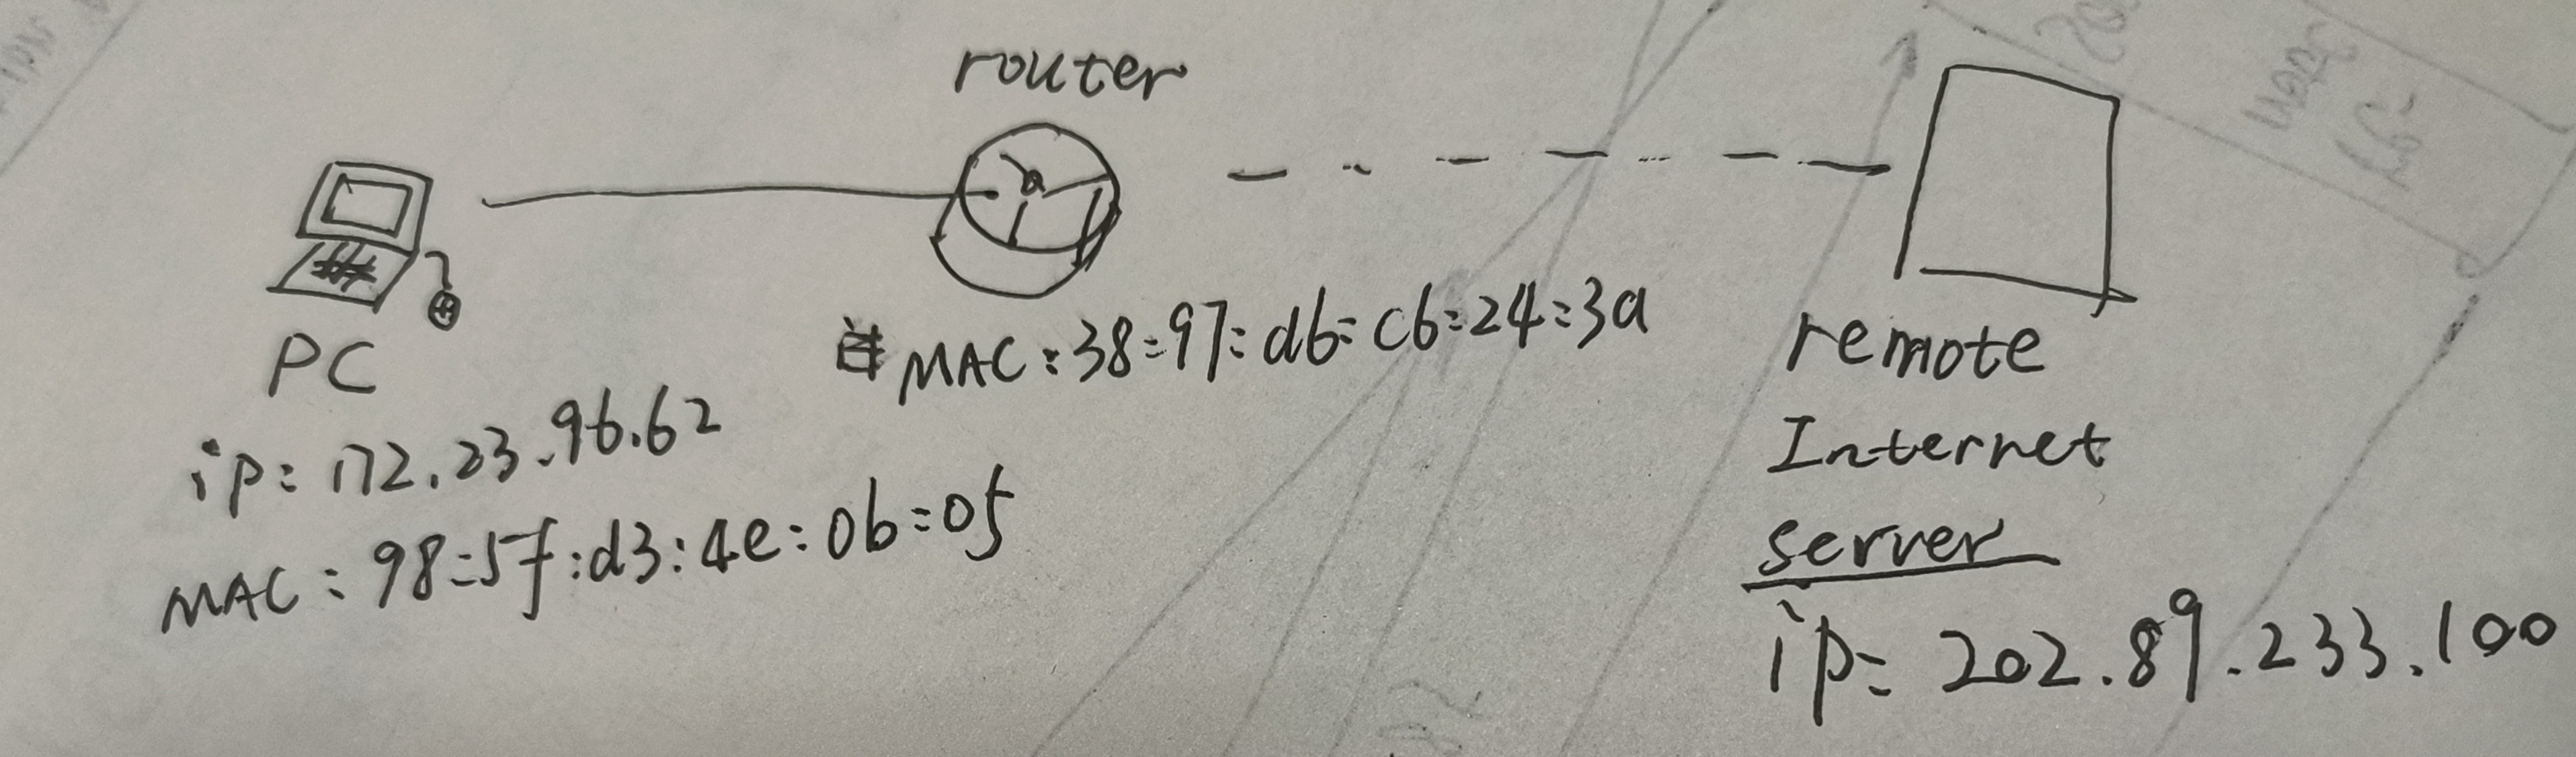 router
PC
ip: 172.23.96.62
MAC: 98:5f:d3:4e:0b:05
MAC: 38:97:db:cb:24:3a
remote
Internet
server
ip: 202.89.233.100